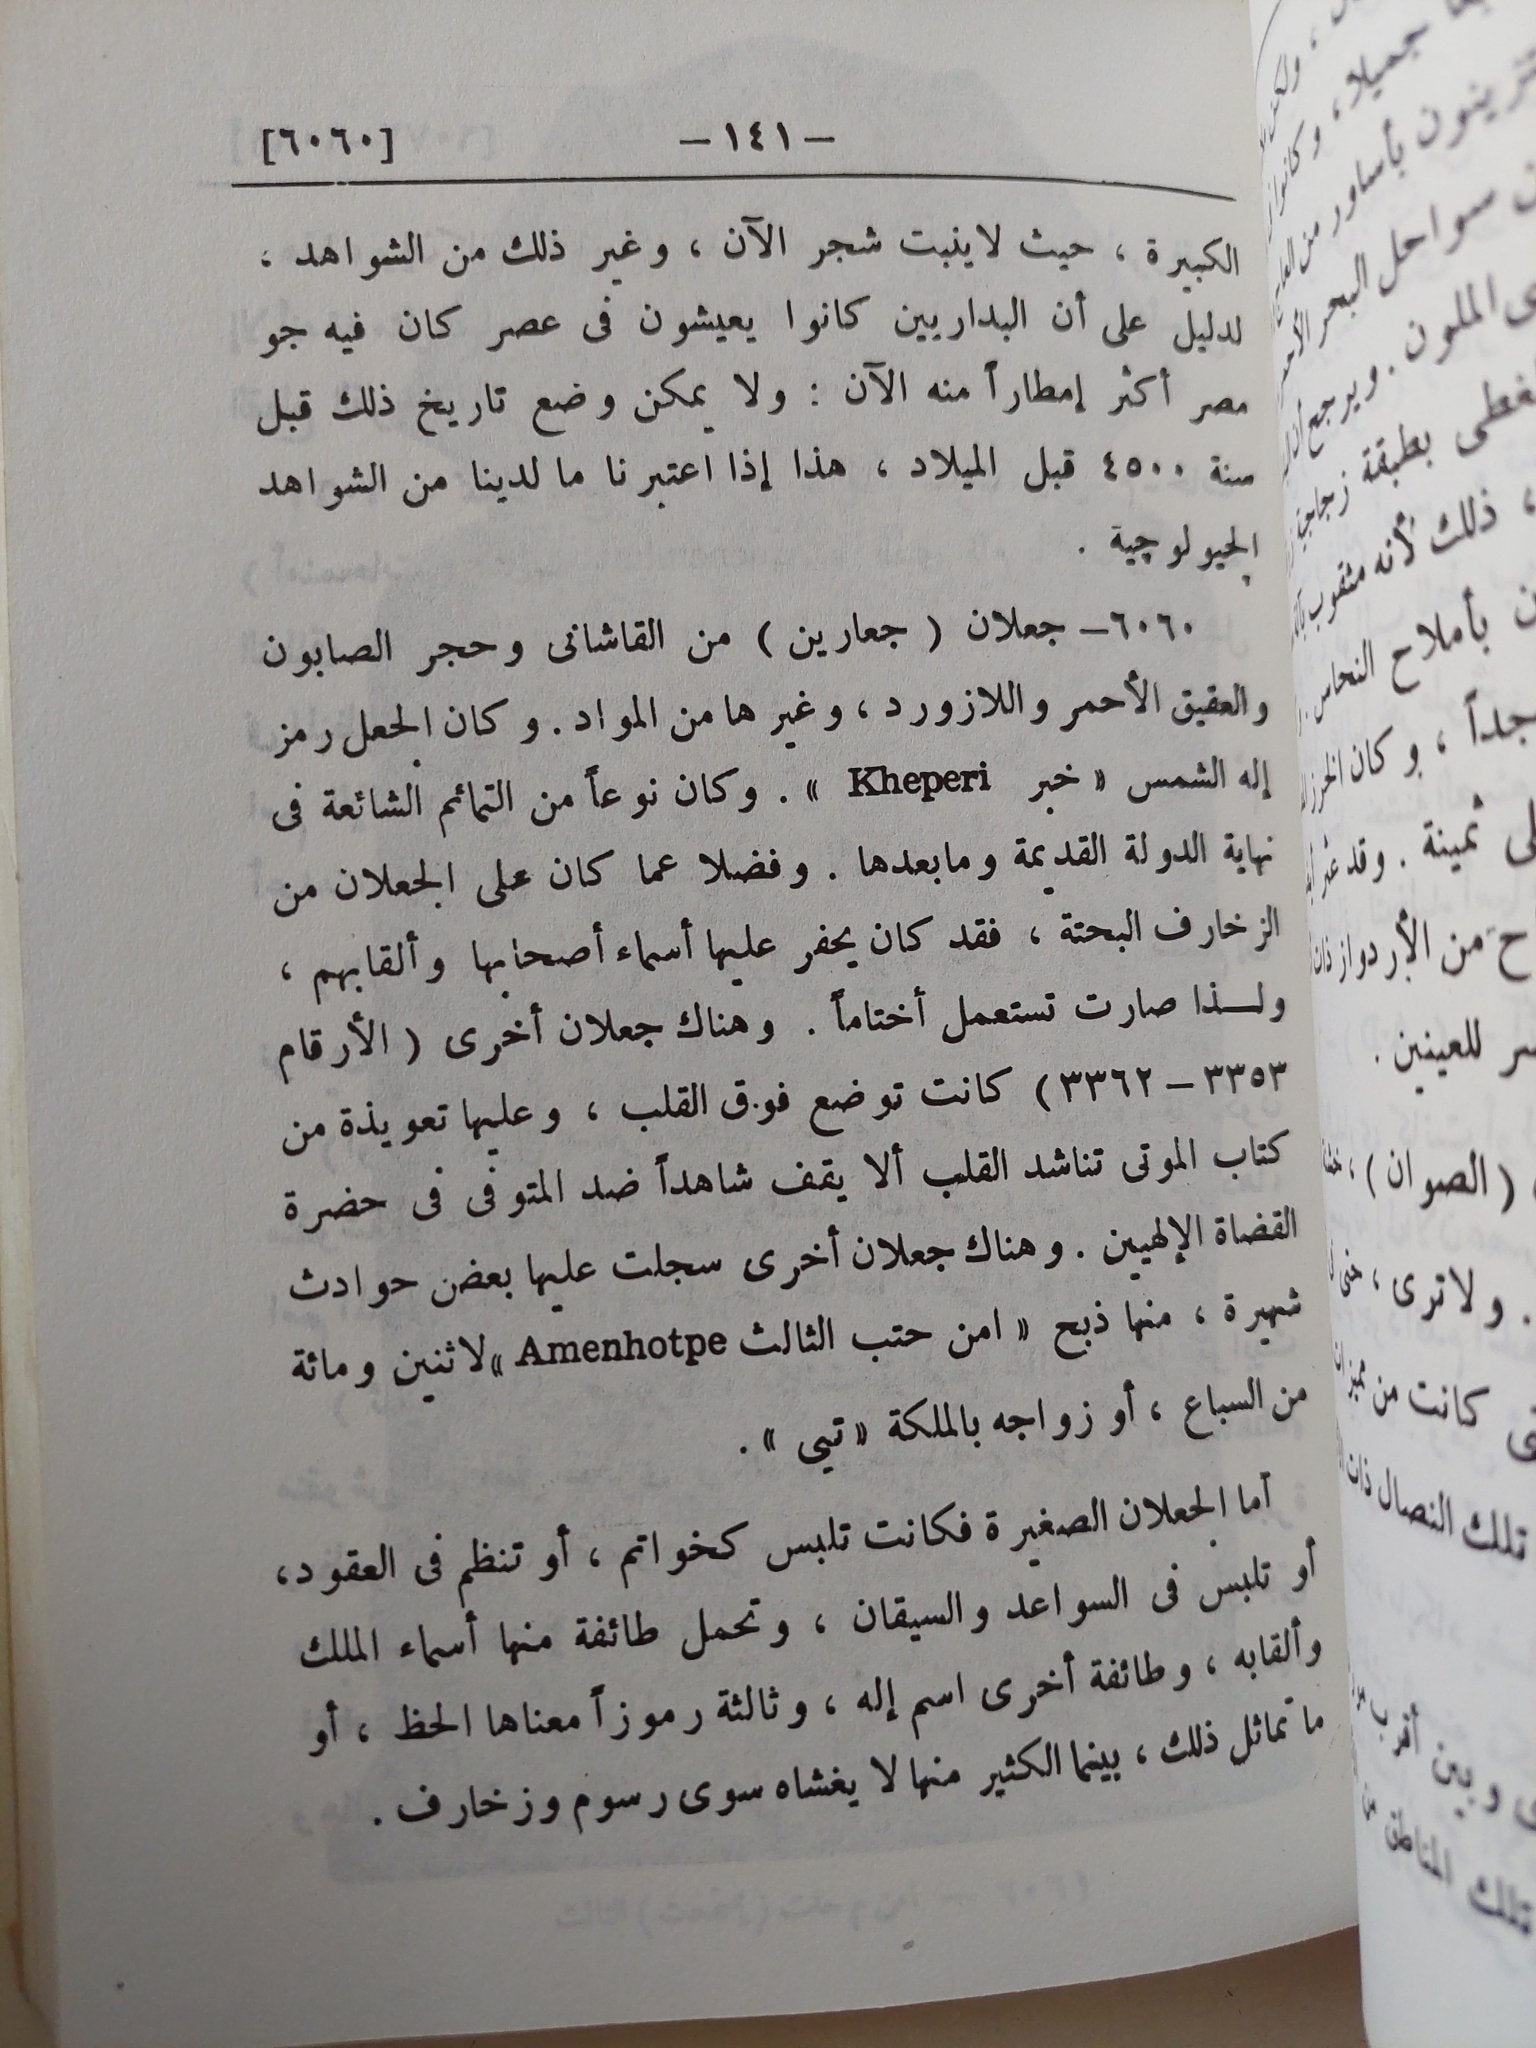 — ١٤١ — [٦٠٦٠]
الكبيرة ، حيث لاينبت شجر الآن ، وغير ذلك من الشواهد ،
لدليل على أن البداريين كانوا يعيشون فى عصر كان فيه جو
مصر أكثر إمطاراً منه الآن : ولا يمكن وضع تاريخ ذلك قبل
سنة ٤٥٠٠ قبل الميلاد ، هذا إذا اعتبرنا ما لدينا من الشواهد
الجيولوچية .
٦٠٦٠ – جعلان ( جعارين ) من القاشانى وحجر الصابون
والعقيق الأحمر واللازورد ، وغيرها من المواد . وكان الجعل رمز
إله الشمس « خبر Kheperi » . وكان نوعاً من التمائم الشائعة فى
نهاية الدولة القديمة ومابعدها . وفضلا عما كان على الجعلان من
الزخارف البحتة ، فقد كان يحفر عليها أسماء أصحابها وألقابهم ،
ولـذا صارت تستعمل أختاماً . وهناك جعلان أخرى ( الأرقام
٣٣٥٣ – ٣٣٦٢ ) كانت توضع فوق القلب ، وعليها تعويذة من
كتاب الموتى تناشد القلب ألا يقف شاهداً ضد المتوفى فى حضرة
القضاة الإلهيين . وهناك جعلان أخرى سجلت عليها بعض حوادث
شهيرة ، منها ذبح « امن حتب الثالث Amenhotpe » لاثنين ومائة
من السباع ، أو زواجه بالملكة « تيي » .
أما الجعلان الصغيرة فكانت تلبس كخواتم ، أو تنظم فى العقود،
أو تلبس فى السواعد والسيقان ، وتحمل طائفة منها أسماء الملك
وألقابه ، وطائفة أخرى اسم إله ، وثالثة رموزاً معناها الحظ ، أو
ما تماثل ذلك ، بينما الكثير منها لا يغشاه سوى رسوم وزخارف .
جميلا ، وكانوا
يتزينون بأساور من العاج
سواحل البحر الأحمر
الملون . ويرجح أن
بطبقة زجاجية
، ذلك لأنه مثقوب
بأملاح النحاس
جداً ، وكان الخرز
ثمينة . وقد عثر
من الأردواز ذات
للعينين .
( الصوان ) ،
. ولاترى ، حتى
كانت من مميزات
تلك النصال ذات
وبين أقرب
تلك المناطق من